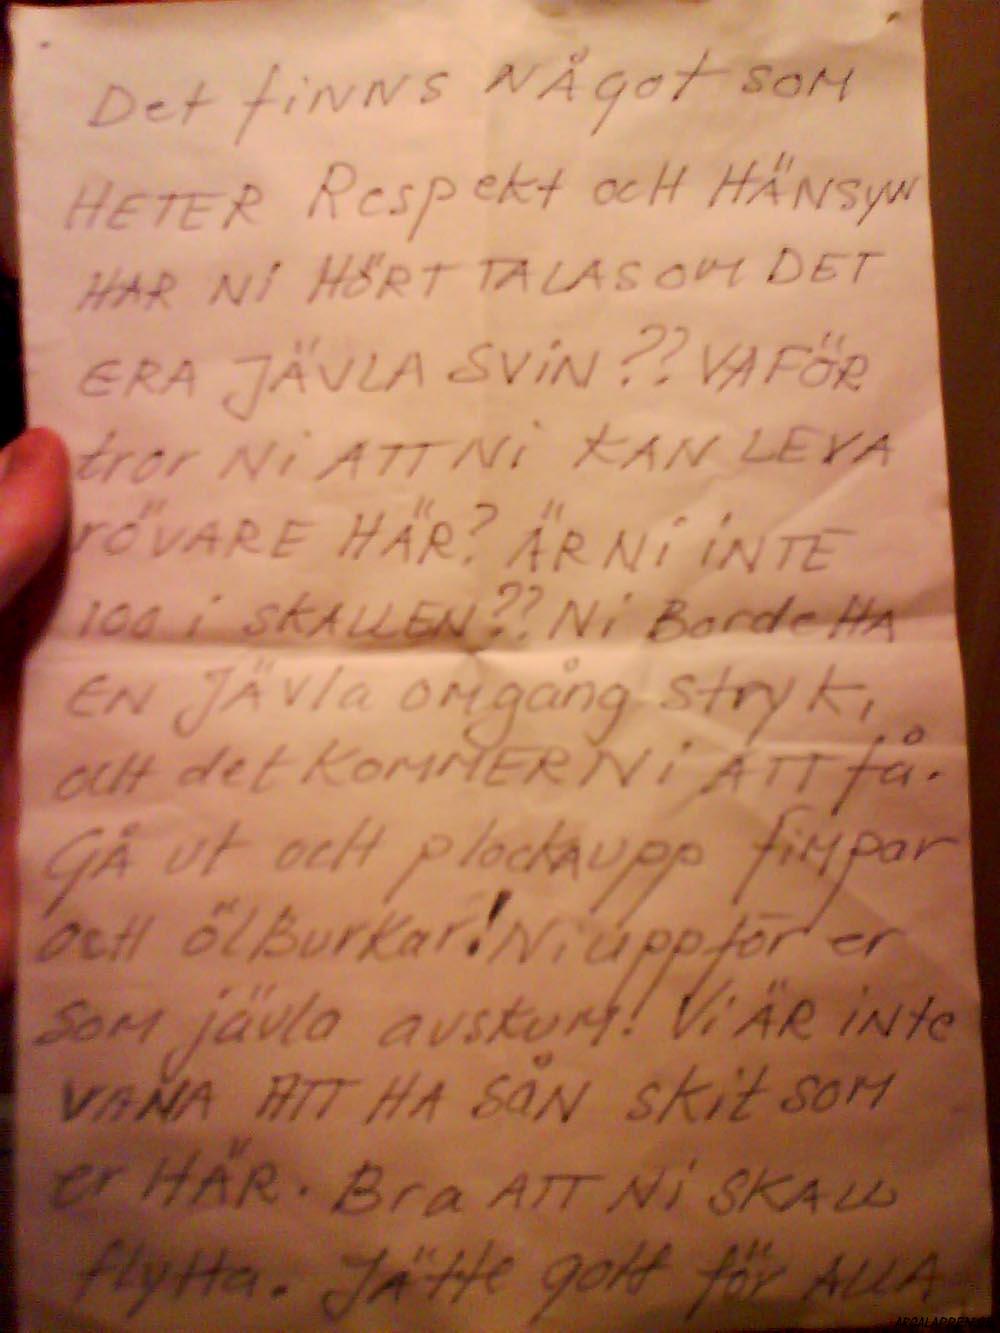 Det finns något som
HETER Respekt ocH HÄNSyN
HAR Ni HÖRT TALAS OM DET
ERA JÄVLA SViN?? VAFÖR
tror Ni ATT Ni KAN LEVA
rövARE HÄR? ÄR Ni iNTE
100 i SKALLEN?? Ni Borde HA
EN JÄVla omgång stryk,
ocH det KOMMER Ni ATT få.
GÅ ut ocH plockAupp fimpar
ocH ölBurKar! Ni uppför er
som jävla avskum! Vi ÄR iNte
VANA ATT HA SåN skit som
er HÄR. Bra ATT Ni SKALL
flytta. JÄtte gott för ALLA
ARGALAPPEN.SE